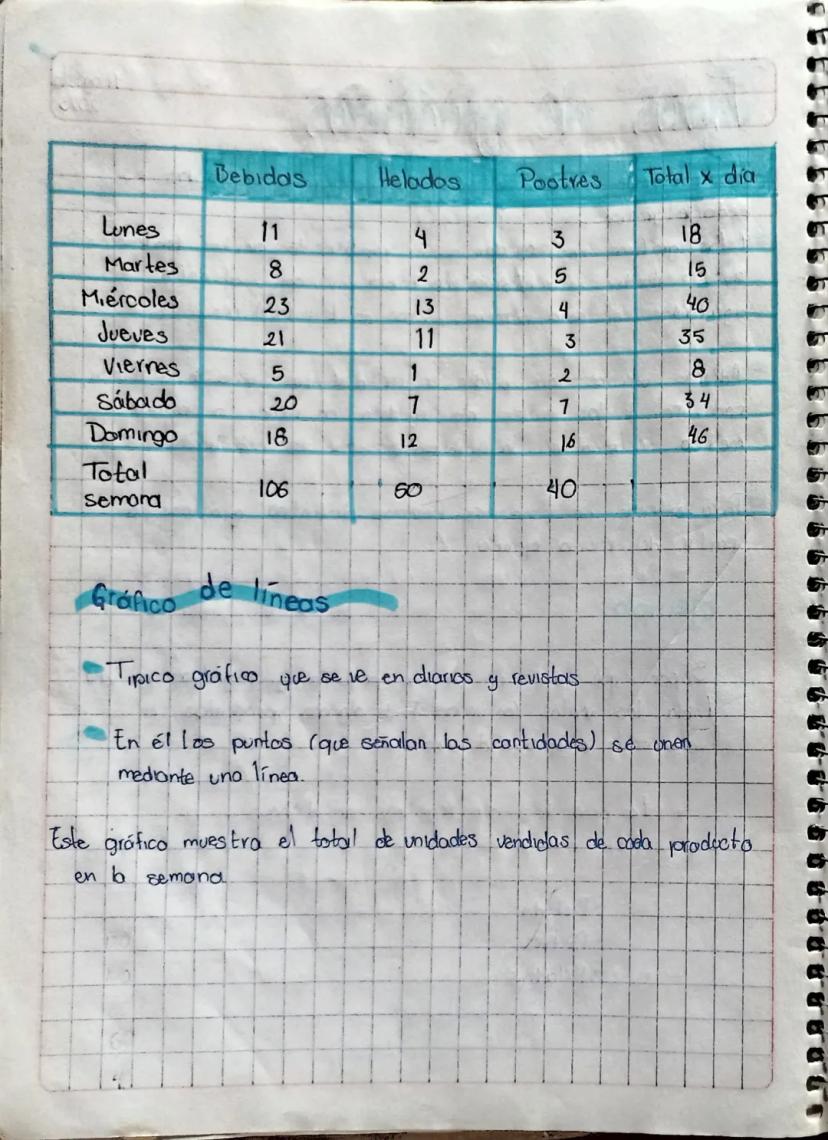 Bebidas Helados Postres Total x día
Lunes 11 4 3 18
Martes 8 2 5 15
Miércoles 23 13 4 40
Jueves 21 11 3 35
Viernes 5 1 2 8
Sábado 20 7 7 34
Domingo 18 12 16 46
Total
semana 106 50 40
Gráfico de líneas
Típico gráfico que se ve en diarios y revistas
En él los puntos (que señalan las cantidades) se unen
mediante una línea.
Este gráfico muestra el total de unidades vendidas de cada producto
en la semana